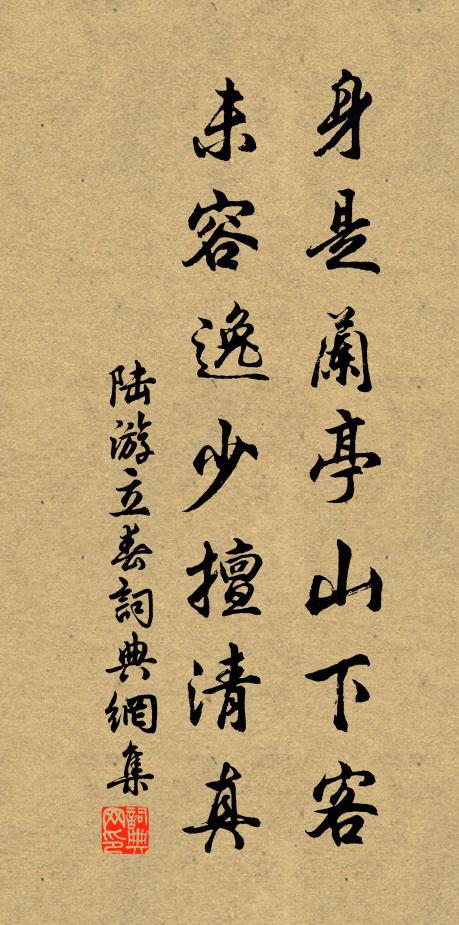 身是蘭亭山下客
未容逸少擅清真
陸游立春詞典網集
詞典網印